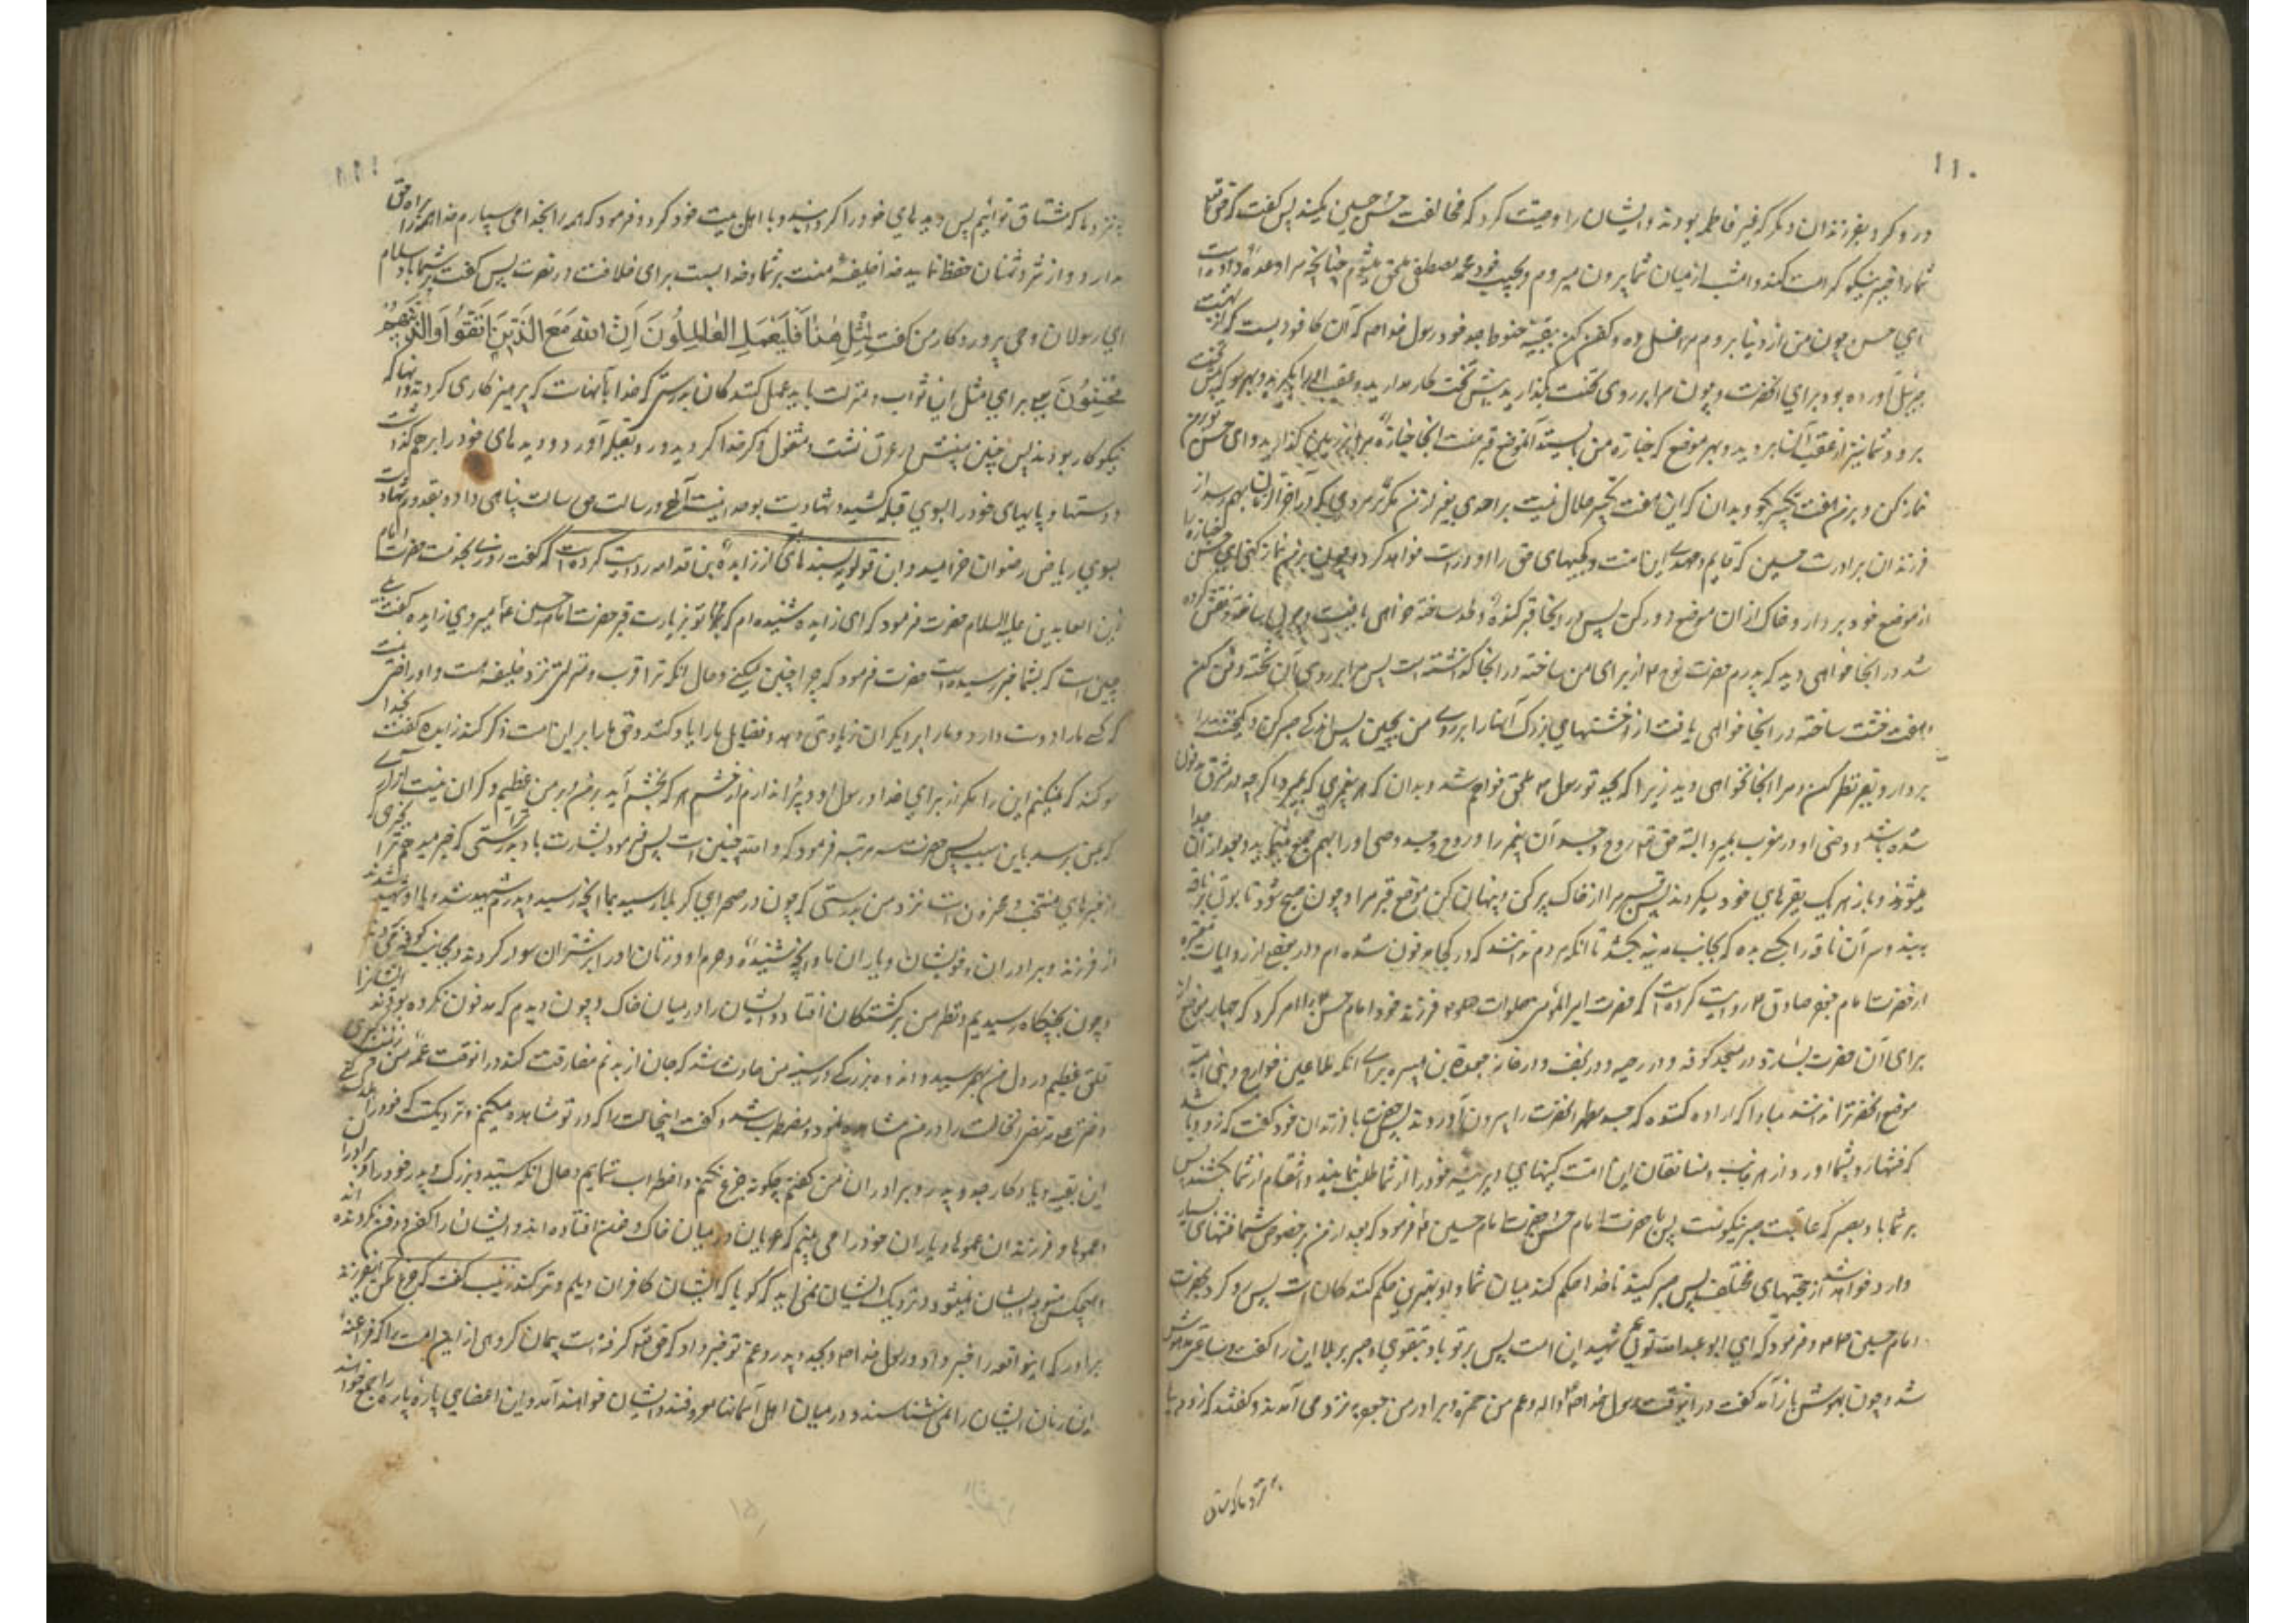 ۱۱۰
و رو کرد بفرزندان دیگر که غیر فاطمه بودند و ایشان را وصیت کرد که مخالفت حسن و حسین مکنید پس گفت که حق تعالی
شما را صبر نیکو کرامت کند و امشب از میان شما بیرون میروم و بحبیب خود محمد مصطفی ملحق میشوم چنانچه مرا وعده داده است
ای حسن چون من از دنیا بروم مرا غسل ده و کفن کن ببقیه حنوط جد خود رسول خدا ص که آن کافور بهشت است که
جبرئیل آورده بود برای آنحضرت و چون مرا بر روی تخت بگذارید پیش تخت کار مدارید و عقب آنرا بگیرید و بهر سو که پیش تخت
برود شما نیز از عقب آن بروید و بهر موضع که جنازه من بایستد آنموضع قبر منست آنجا جنازه مرا بر زمین گذارید و ای حسن تو بر من
نماز کن و بر من هفت تکبیر بگو و بدان که این هفت تکبیر حلال نیست بر احدی بغیر از من مگر بر مردی که در آخر الزمان بهم رسد از
فرزندان برادرت حسین که قایم و مهدی این امت و کجیهای حق را او راست خواهد کرد و چون بر من نماز کنی ای حسن جنازه را
از موضع خود بردار و خاک از آن موضع دور کن پس در آنجا قبر کنده و لحد ساخته خواهی یافت و
در آنجا خواهی دید که پدرم حضرت نوح ع از برای من ساخته در آنجا گذاشته است پس مرا بر روی آن تخته دفن کن
و هفت خشت ساخته در آنجا خواهی یافت از خشتهای بزرگ آنها را بر روی من بچین پس اندکی صبر کن و یک خشت را
بردار و بقبر نظر کن و مرا آنجا نخواهی دید زیرا که بجد تو رسول ص ملحق خواهم شد و بدان که هر پیغمبری که بمیرد اگرچه در مشرق مدفون
شده باشد و وصی او در مغرب بمیرد البته حق تعالی روح و جسد آن پیغمبر را و روح و جسد وصی او را بهم جمع مینماید و بعد از آن جدا
میشوند و باز هر یک بقبرهای خود بر میگردند پس قبر مرا از خاک پر کن و پنهان کن موضع قبر مرا و چون صبح شود تابوتی بر ناقه
ببند و سر آن ناقه را بکسی بده که بجانب مدینه بکشد تا آنکه مردم ندانند که در کجا مدفون شده ام و در بعضی از روایات معتبره
از حضرت امام جعفر صادق ع روایت کرده است که حضرت امیرالمؤمنین صلوات فرزند خود امام حسن ع را امر کرد که چهار موضع
برای آن حضرت بسازد در مسجد کوفه و در رحبه و در نجف و در خانه جعدة بن هبیره برای آنکه ملاعین خوارج و بنی امیه
موضع آنحضرت را ندانند مبادا که اراده کنند که جسد مطهر آنحضرت را بیرون آورند پس حضرت با فرزندان خود گفت که زود باشد
که فتنها رو بشما آورد از هر جانب و منافقان این امت کینهای دیرینه خود را از شما طلب نمایند و انتقام از شما بکشند پس
بر شما باد بصبر که عاقبت صبر نیکوست پس با حضرت امام حسن و حضرت امام حسین ع فرمود که بعد از من بخصوص شما فتنهای بسیار
وارد خواهد شد از جهتهای مختلف پس صبر کنید تا خدا حکم کند میان شما و او بهترین حکم کنندگان است پس رو کرد بحضرت
امام حسین ع و فرمود که ای ابو عبد الله توئی شهید این امت پس بر تو باد بتقوی و صبر بر بلا این را گفت و ساعتی مدهوش
شد و چون بهوش باز آمد گفت در اینوقت رسول خدا ص و عم من حمزه و برادر من جعفر به نزد من آمدند و گفتند که زود بیا
به نزد ما که مشتاق
۱۱۱
به نزد ما که مشتاق توئیم پس دیدهای خود را گردانید و با اهل بیت خود کرد و فرمود که همه را بخدا می سپارم خدا همه را براه حق
بدارد و از شر دشمنان حفظ نماید خدا خلیفه منست بر شما و خدا بس است برای خلافت و نصرت پس گفت بر شما باد سلام
ای رسولان وحی پروردگار من گفت لِمِثْلِ هٰذَا فَلْيَعْمَلِ الْعَامِلُونَ اِنَّ اللّٰهَ مَعَ الَّذِينَ اتَّقَوْا وَالَّذِينَ هُمْ
مُحْسِنُونَ یعنی برای مثل این ثواب و منزلت باید عمل کنند عمل کنندگان بدرستی که خدا با آنهاست که پرهیزکاری کردند و آنها که
نیکوکار بودند پس جبین مبینش در عرق نشست و مشغول ذکر خدا گردید و رو بقبله آورد و دیدهای خود را بر هم گذاشت
و دستها و پایهای خود را بسوی قبله کشید و شهادت بوحدانیت الهی و رسالت حضرت رسالت پناهی داد و بقدم شهادت
بسوی ریاض رضوان خرامید و ابن قولویه بسندهای از زایدة بن قدامه روایت کرده است که گفت روزی بخدمت حضرت امام
زین العابدین علیه السلام حضرت فرمود که ای زایده شنیده ام که تو بزیارت قبر حضرت امام حسین ع میروی زایده گفت بلی
چنین است که بشما خبر رسیده است حضرت فرمود که چرا چنین میکنی و حال آنکه ترا قرب و منزلتی نزد خلیفه هست و او راضی نیست
که کسی ما را دوست دارد و ما را بر دیگران زیادتی دهد و فضایل ما را یاد کند و حق ما را بر این امت ذکر کند زایده گفت بخدا
سوگند که نمیکنم این را مگر از برای خدا و رسول او و پروا ندارم از خشم هر که بخشم آید بر من و بر من عظیم و گران نیست آزاری
که بمن برسد باین سبب پس حضرت سه مرتبه فرمود که و الله چنین است پس فرمود بشارت باد ترا بدرستی که خبر میدهم ترا بخبری که
از خبرهای منتخب و مخزون است نزد من بدرستی که چون در صحرای کربلا رسید بما آنچه رسید و پدرم شهید شد و با او شهید شدند
از فرزند و برادران و خویشان و یاران ما و آنچه شنیده و حرم او و زنان او را بر شتران سوار کردند و بجانب کوفه
و چون بجنگگاه رسیدیم و نظر من بر کشتگان افتاد و ایشان را در میان خاک و چون دیدم که مدفون نکرده بودند ایشانرا
قلقی عظیم در دل من بهم رسید و اندوه بزرگی در سینه من حادث شد که جان از بدنم مفارقت کند در آنوقت عمه من زینب کبری
این بقیه و یادگار جد و پدر و برادران من گفتم چگونه جزع نکنم و اضطراب ننمایم و حال آنکه سید و بزرگ و پدر خود را و برادران
و عموها و فرزندان عموها و یاران خود را می بینم که عریان در میان خاک و خون افتاده اند و ایشان را کفن و دفن نکرده اند
و هیچکس متوجه ایشان نمیشود و نزدیک ایشان نمی آید که گویا که ایشان کافران دیلم و ترکند زینب گفت که جزع مکن ای فرزند
برادر که اینواقعه را خبر داد رسول خدا ص بجد و پدر و عم تو خبر داد که حق تعالی گرفته است پیمان گروهی از این امت را که فراعنه
این زمان ایشان را نمی شناسند و در میان اهل آسمانها معروفند و ایشان خواهند آمد و این اعضای پاره پاره را جمع خواهند